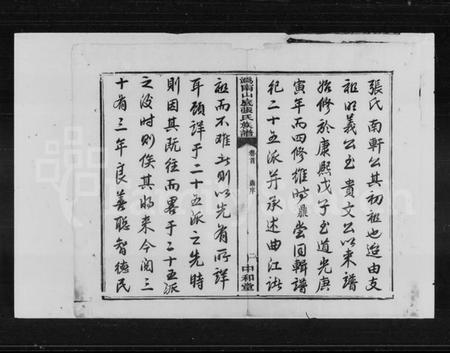 張氏南軒公其初祖也迨由支
祖明義公至貴文公以來譜
始修於康熙戊子至道光庚
寅年而四修雄時嚴嘗回輯譜
紀二十五派并承述曲江
祖而不難此則以先前所詳
耳碩詳于二十五派之先時
則因其既往而畧于二十五派
之後时則俟其將來今閱三
十有三年良善聰智德民
鴻南山底張氏族譜
卷首
序
中和堂